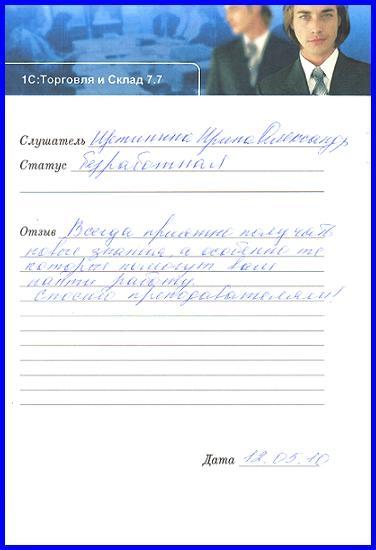 1С:Торговля и Склад 7.7
Слушатель Ирина Александр
Статус безработная
Отзыв Всегда приятно получать
новые знания, а особенно те
которые помогут вам
найти работу.
Спасибо преподавателям!
Дата 12.05.10